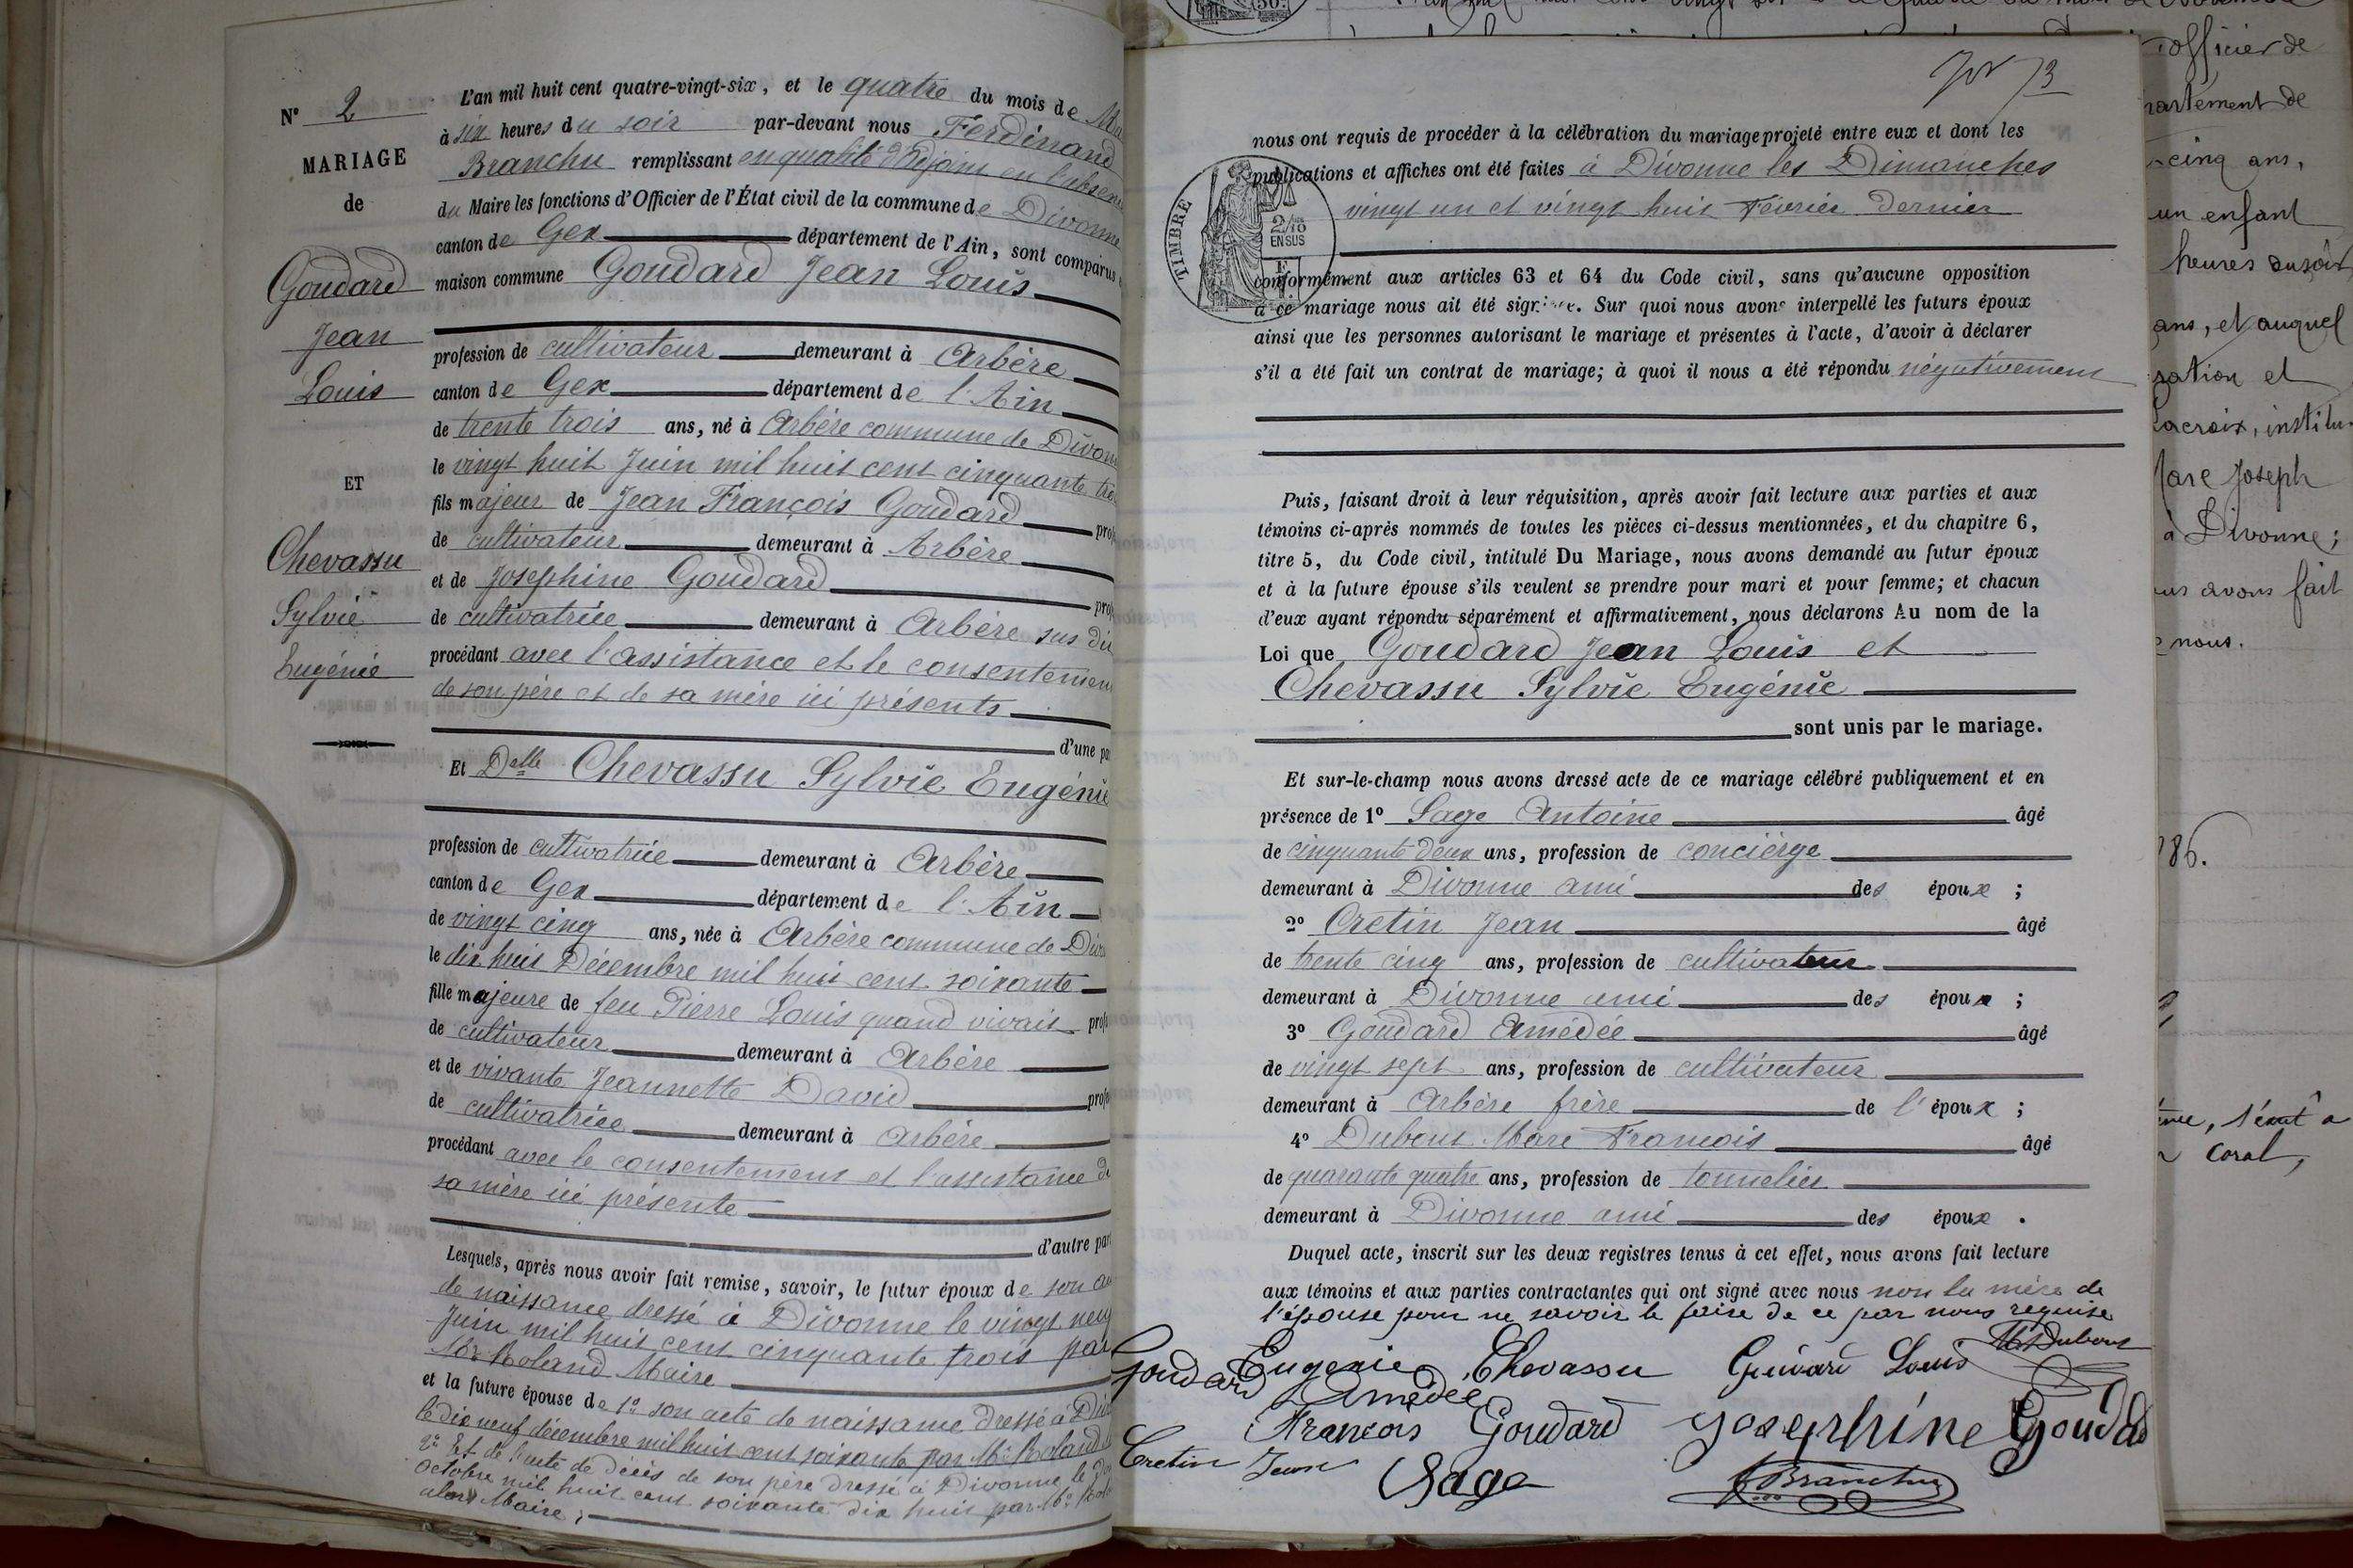 N° 2
MARIAGE
de
Goudard
Jean
Louis
ET
Chevassu
Sylvie
Eugénie
L'an mil huit cent quatre-vingt-six, et le quatre du mois de Ma
à six heures du soir par-devant nous Ferdinand
Branchu remplissant en qualité d'adjoint en l'absence
du Maire les fonctions d'Officier de l'État civil de la commune de Divonne
canton de Gex département de l'Ain, sont comparus
maison commune Goudard Jean Louis
profession de cultivateur demeurant à Arbère
canton de Gex département de l'Ain
de trente trois ans, né à Arbère commune de Divonn
le vingt huit Juin mil huit cent cinquante tro
fils majeur de Jean François Goudard prof
de cultivateur demeurant à Arbère
et de Josephine Goudard prof
de cultivatrice demeurant à Arbère sus dit
procédant avec l'assistance et le consentement
de son père et de sa mère ici présents
d'une pa
Et Delle Chevassu Sylvie Eugénie
profession de cultivatrice demeurant à Arbère
canton de Gex département de l'Ain
de vingt cinq ans, née à Arbère commune de Divo
le dix huit Décembre mil huit cent soixante
fille majeure de feu Pierre Louis quand vivait profe
de cultivateur demeurant à Arbère
et de vivante Jeannette David profe
de cultivatrice demeurant à Arbère
procédant avec le consentement et l'assistance de
sa mère ici présente
d'autre part
Lesquels, après nous avoir fait remise, savoir, le futur époux de son ac
de naissance dressé à Divonne le vingt neuf
Juin mil huit cent cinquante trois par
Mr Roland Maire
et la future épouse de 1° son acte de naissance dressé à Div
le dix neuf décembre mil huit cent soixante par Mr Roland
2° Et de l'acte de décès de son père dressé à Divonne le
Octobre mil huit cent soixante dix huit par Mr Rol
alors Maire;
73
nous ont requis de procéder à la célébration du mariage projeté entre eux et dont les
publications et affiches ont été faites à Divonne les Dimanches
vingt un et vingt huit Février dernier
TIMBRE
2/10
EN SUS
conformément aux articles 63 et 64 du Code civil, sans qu'aucune opposition
à ce mariage nous ait été signifiée. Sur quoi nous avons interpellé les futurs époux
ainsi que les personnes autorisant le mariage et présentes à l'acte, d'avoir à déclarer
s'il a été fait un contrat de mariage; à quoi il nous a été répondu négativement
Puis, faisant droit à leur réquisition, après avoir fait lecture aux parties et aux
témoins ci-après nommés de toutes les pièces ci-dessus mentionnées, et du chapitre 6,
titre 5, du Code civil, intitulé Du Mariage, nous avons demandé au futur époux
et à la future épouse s'ils veulent se prendre pour mari et pour femme; et chacun
d'eux ayant répondu séparément et affirmativement, nous déclarons Au nom de la
Loi que Goudard Jean Louis et
Chevassu Sylvie Eugénie
sont unis par le mariage.
Et sur-le-champ nous avons dressé acte de ce mariage célébré publiquement et en
présence de 1° Sage Antoine âgé
de cinquante deux ans, profession de concièrge
demeurant à Divonne ami des époux ;
2° Cretin Jean âgé
de trente cinq ans, profession de cultivateur
demeurant à Divonne ami des époux ;
3° Goudard Amédée âgé
de vingt sept ans, profession de cultivateur
demeurant à Arbère frère de l'époux ;
4° Dubout Marc François âgé
de quarante quatre ans, profession de tonnelier
demeurant à Divonne ami des époux .
Duquel acte, inscrit sur les deux registres tenus à cet effet, nous avons fait lecture
aux témoins et aux parties contractantes qui ont signé avec nous non la mère de
l'épouse pour ne savoir le faire de ce par nous requise
M Dubout
Eugenie Chevassu Goudard Louis
Goudard Amédée
François Goudard Josephine Goudard
Cretin Jean Sage
F Branchu
officier de
partement de
cinq ans,
un enfant
heures du soir
ans, et auquel
ration et
Lacroix, institu
Marc Joseph
à Divonne;
us avons fait
nous.
86.
Coral,